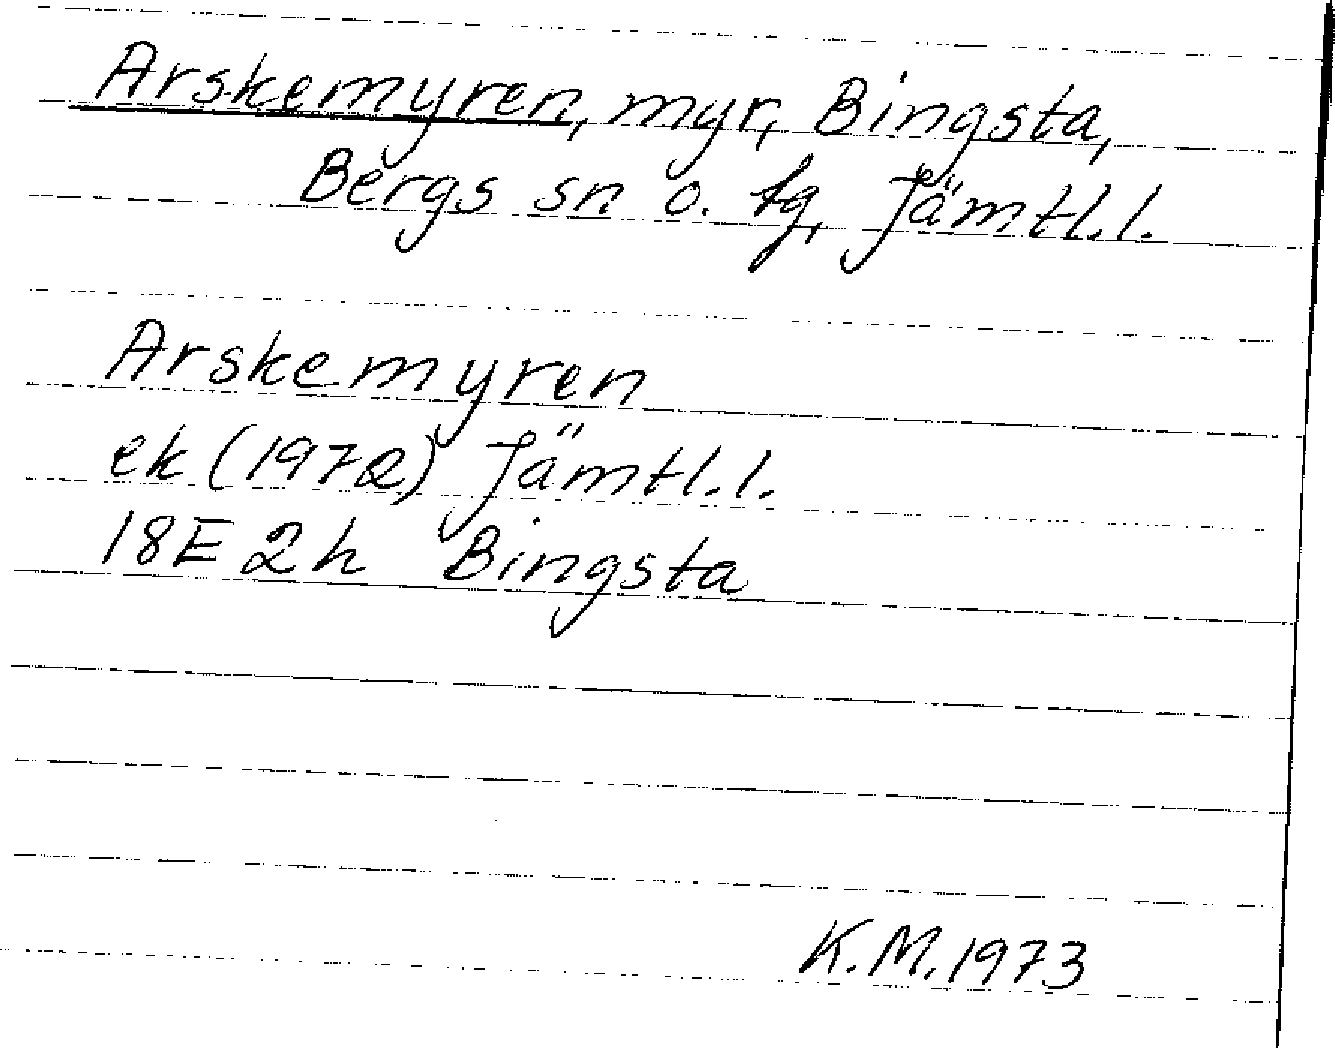 Arskemyren, myr, Bingsta,
Bergs sn o. tg, Jämtl.l.
Arskemyren
ek (1972) Jämtl.l.
18E 2h Bingsta
K.M. 1973